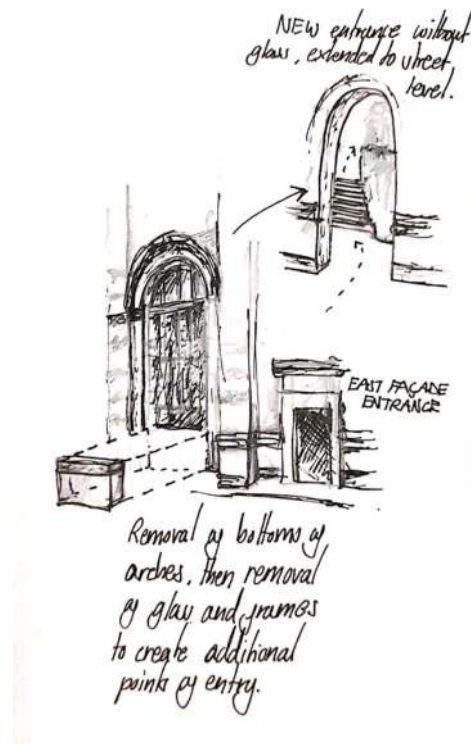 NEW entrance without
glass, extended to street
level.
EAST FAÇADE
ENTRANCE
Removal of bottoms of
arches, then removal
of glass and frames
to create additional
points of entry.